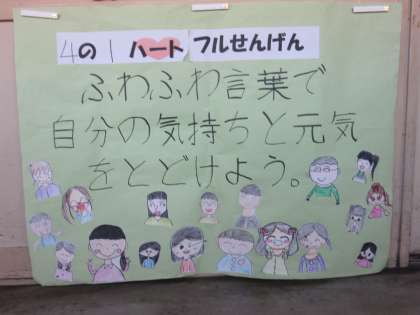 4の1 ハートフルせんげん
ふわふわ言葉で
自分の気持ちと元気
をとどけよう。